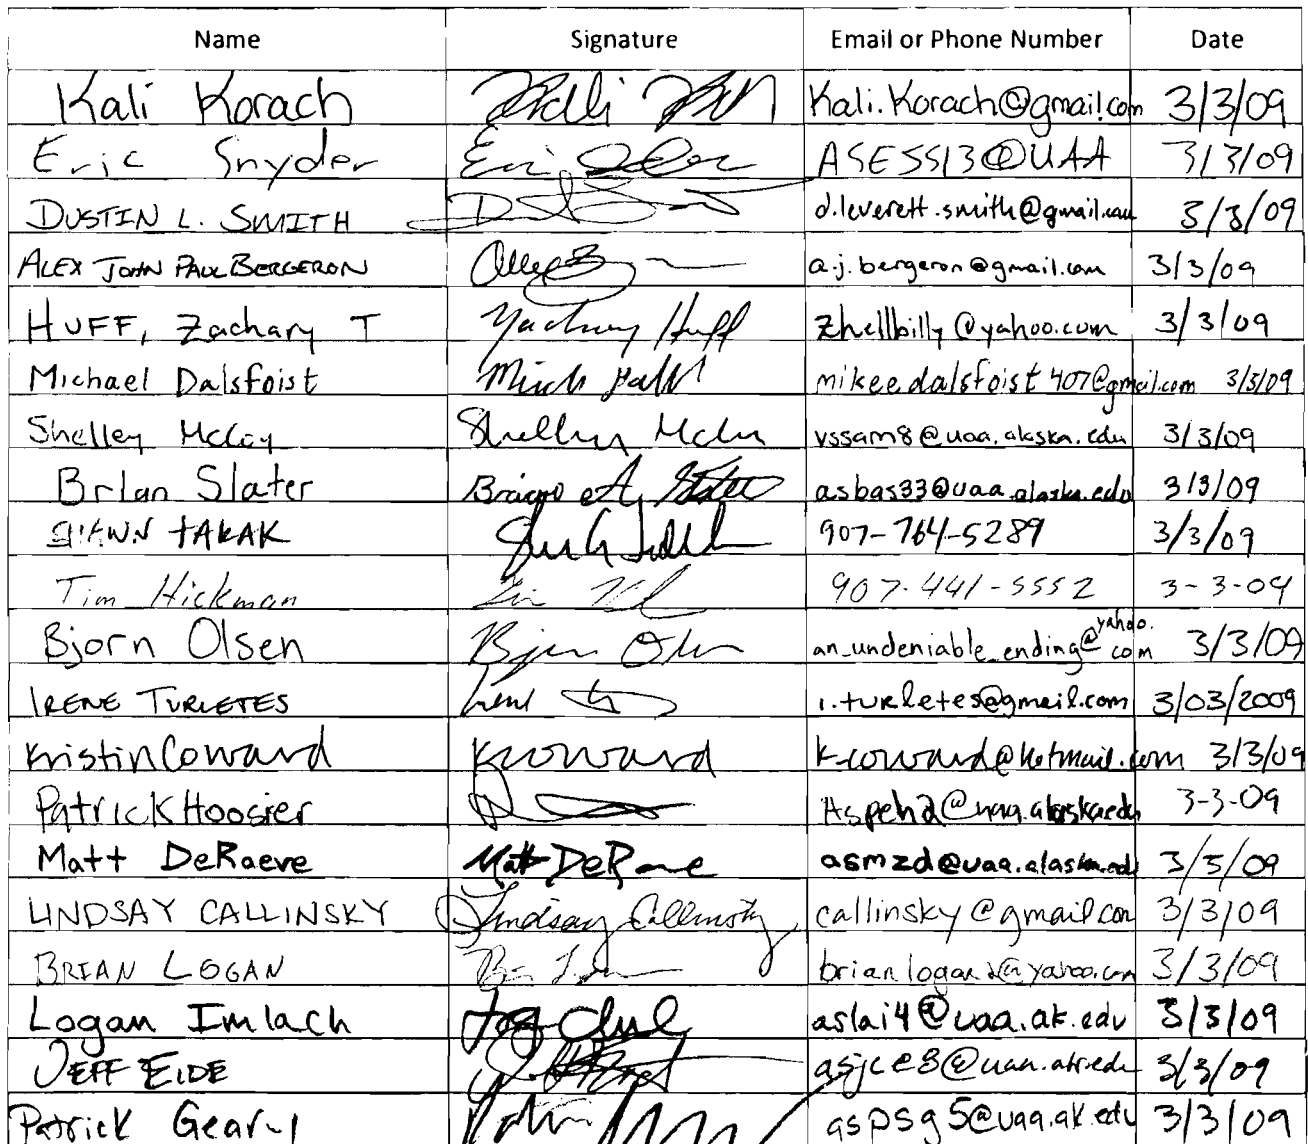 Name Signature Email or Phone Number Date
Kali Korach Kali Kali.Korach@gmail.com 3/3/09
Eric Snyder Eric ASESS13@UAA 3/3/09
DUSTIN L. SMITH d.leverett.smith@gmail.com 3/3/09
ALEX JOHN PAUL BERGERON a.j.bergeron@gmail.com 3/3/09
HUFF, Zachary T Zachary Huff zhellbilly@yahoo.com 3/3/09
Michael Dalsfoist mikeedalsfoist407@gmail.com 3/3/09
Shelley McCoy Shelley vssam8@uaa.alaska.edu 3/3/09
Brian Slater asbas33@uaa.alaska.edu 3/3/09
SHAWN TAKAK 907-764-5289 3/3/09
Tim Hickman 907-441-5552 3-3-09
Bjorn Olsen Bjorn Olsen an_undeniable_ending@yahoo.com 3/3/09
IRENE TURLETES i.turletes@gmail.com 3/03/2009
Kristin Coward KCoward k-coward@hotmail.com 3/3/09
Patrick Hoosier aspeh2@uaa.alaska.edu 3-3-09
Matt DeRaeve Matt DeRaeve asmzd@uaa.alaska.edu 3/3/09
LINDSAY CALLINSKY Lindsay Callinsky callinsky@gmail.com 3/3/09
BRIAN LOGAN brianlogan2@yahoo.com 3/3/09
Logan Imlach aslai4@uaa.ak.edu 3/3/09
JEFF EIDE asjce3@uaa.ak.edu 3/3/09
Patrick Geary aspsg5@uaa.ak.edu 3/3/09